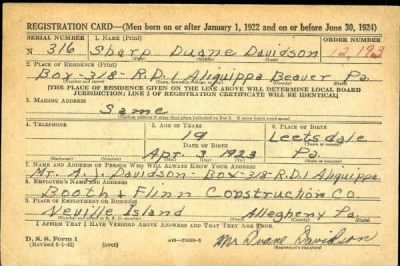 REGISTRATION CARD—(Men born on or after January 1, 1922 and on or before June 30, 1924)
SERIAL NUMBER 1. NAME (Print) ORDER NUMBER
N 316 Sharp Duane Davidson 12,193
2. PLACE OF RESIDENCE (Print)
Box-318-R.D.1 Aliquippa Beaver Pa.
[THE PLACE OF RESIDENCE GIVEN ON THE LINE ABOVE WILL DETERMINE LOCAL BOARD
JURISDICTION; LINE 2 OF REGISTRATION CERTIFICATE WILL BE IDENTICAL]
3. MAILING ADDRESS
Same
4. TELEPHONE 5. AGE IN YEARS 6. PLACE OF BIRTH
19 Leetsdale
DATE OF BIRTH
Apr. 3 1923 Pa.
7. NAME AND ADDRESS OF PERSON WHO WILL ALWAYS KNOW YOUR ADDRESS
Mr. A. J. Davidson-Box-318-R.D.1 Aliquippa
8. EMPLOYER'S NAME AND ADDRESS
Booth & Flinn Construction Co.
9. PLACE OF EMPLOYMENT OR BUSINESS
Neville Island Allegheny Pa.
I AFFIRM THAT I HAVE VERIFIED ABOVE ANSWERS AND THAT THEY ARE TRUE.
D. S. S. Form 1 (over)
Mr Duane Davidson